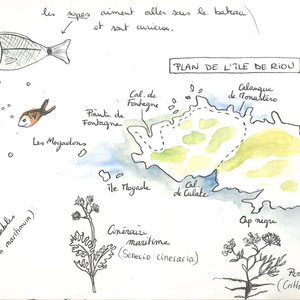 les sopes aiment aller sous le bateau
et sont curieux.
PLAN DE L'ÎLE DE RIOU
Cal. de
Fontagne
Calanque
de Monastéro
Pointe de
Fontagne
Les Moyadons
Île Moyade
Cal.
de Culate
Cap nègre
Cinéraire
maritime
(Senecio cineraria)
maritimum)
(Crith